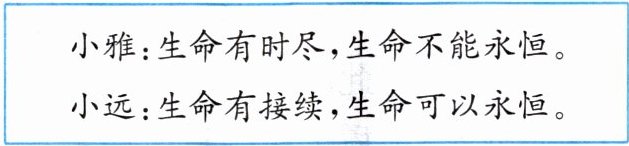 小雅:生命有时尽,生命不能永恒。
小远:生命有接续,生命可以永恒。